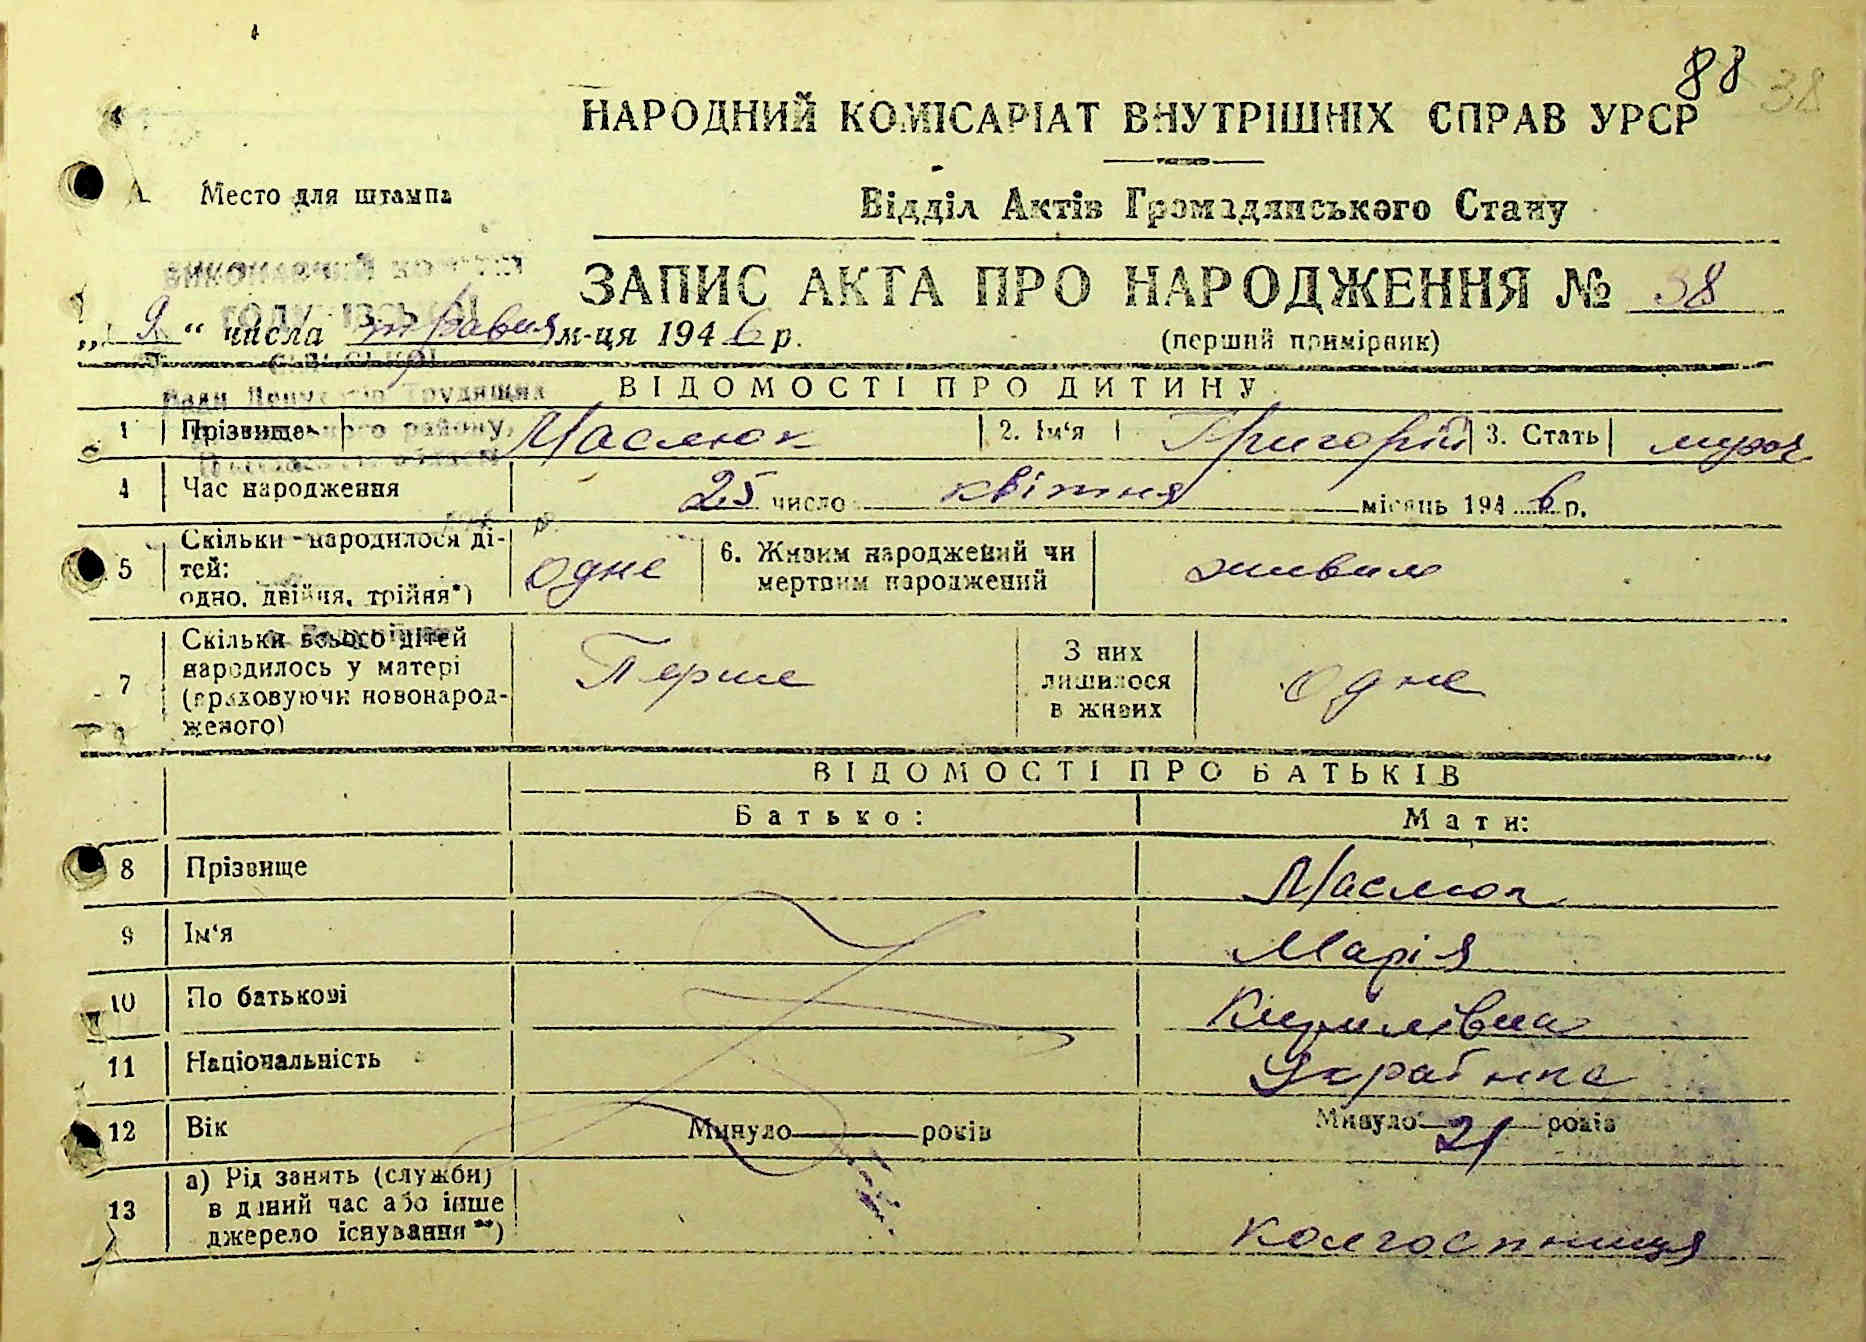 88 38
НАРОДНИЙ КОМІСАРІАТ ВНУТРІШНІХ СПРАВ УРСР
Место для штампа
Відділ Актів Громадянського Стану
ВИКОНАВЧИЙ КОМІТЕТ
ЗАПИС АКТА ПРО НАРОДЖЕННЯ № 38
„ 9 “ числа травня м-ця 1946 р.
(перший примірник)
Ради Депутатів Трудящих
району,
ВІДОМОСТІ ПРО ДИТИНУ
1 Прізвище Маслюк 2. Ім'я Григорій 3. Стать муж
4 Час народження 25 число квітня місяць 1946 р.
5 Скільки народилося ді-
тей:
одно, двійня, трійня*)
одне
6. Живим народжений чи
мертвим народжений
живим
7 Скільки всього дітей
народилось у матері
(враховуючи новонарод-
женого)
Перше
З них
лишилося
в живих
одне
ВІДОМОСТІ ПРО БАТЬКІВ
Батько: Мати:
8 Прізвище Маслюк
9 Ім'я Марія
10 По батькові Кирилівна
11 Національність Українка
12 Вік Минуло років Минуло 21 років
13 а) Рід занять (служби)
в даний час або інше
джерело існування**)
колгоспниця